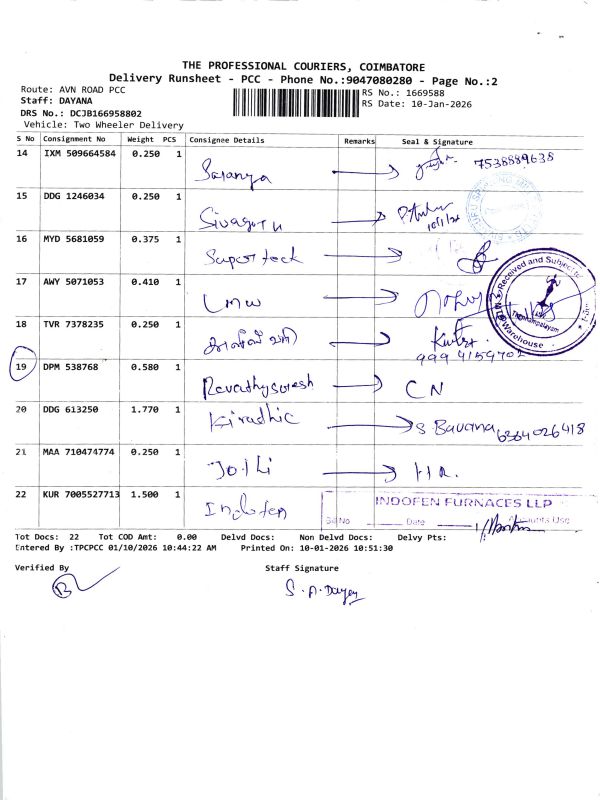 THE PROFESSIONAL COURIERS, COIMBATORE
Delivery Runsheet - PCC - Phone No.:9047080280 - Page No.:2
Route: AVN ROAD PCC
RS No.: 1669588
Staff: DAYANA
RS Date: 10-Jan-2026
DRS No.: DCJB166958802
Vehicle: Two Wheeler Delivery
S No Consignment No Weight PCS Consignee Details Remarks Seal & Signature
14 IXM 509664584 0.250 1 Saranya 7538889638
15 DDG 1246034 0.250 1 10/1/26
16 MYD 5681059 0.375 1 Supertech
17 AWY 5071053 0.410 1 LMW Received and Subject to
18 TVR 7378235 0.250 1 9994159702 Warehouse
19 DPM 538768 0.580 1 Revathysuresh CN
20 DDG 613250 1.770 1 S. Bavana 6364026418
21 MAA 710474774 0.250 1 HR.
22 KUR 7005527713 1.500 1 Indofen INDOFEN FURNACES LLP
Bill No Date Accounts Use
Tot Docs: 22 Tot COD Amt: 0.00 Delvd Docs: Non Delvd Docs: Delvy Pts:
Entered By :TPCPCC 01/10/2026 10:44:22 AM Printed On: 10-01-2026 10:51:30
Verified By Staff Signature